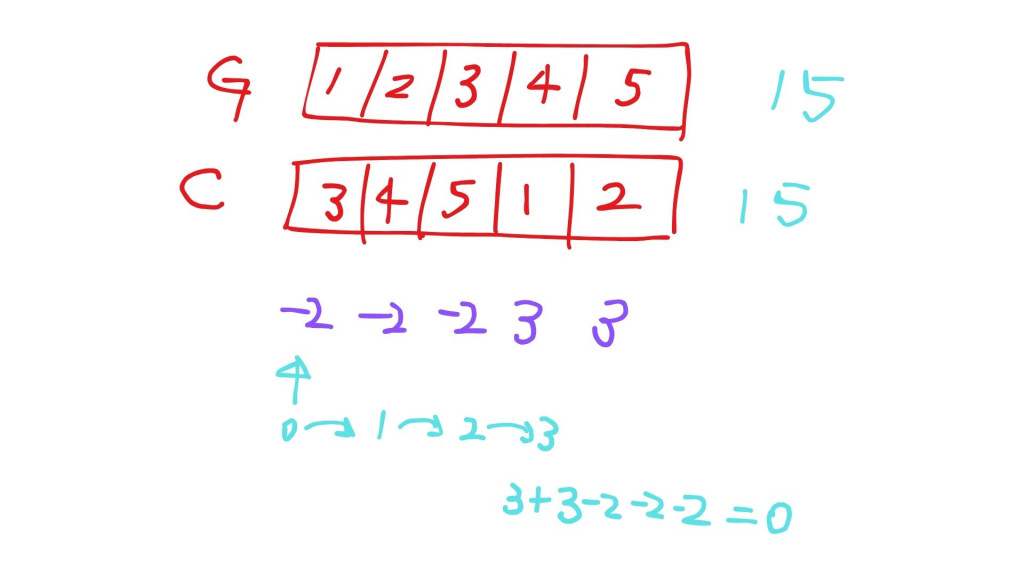 G 1 2 3 4 5 15
C 3 4 5 1 2 15
-2 -2 -2 3 3
0 → 1 → 2 → 3
3+3-2-2-2=0